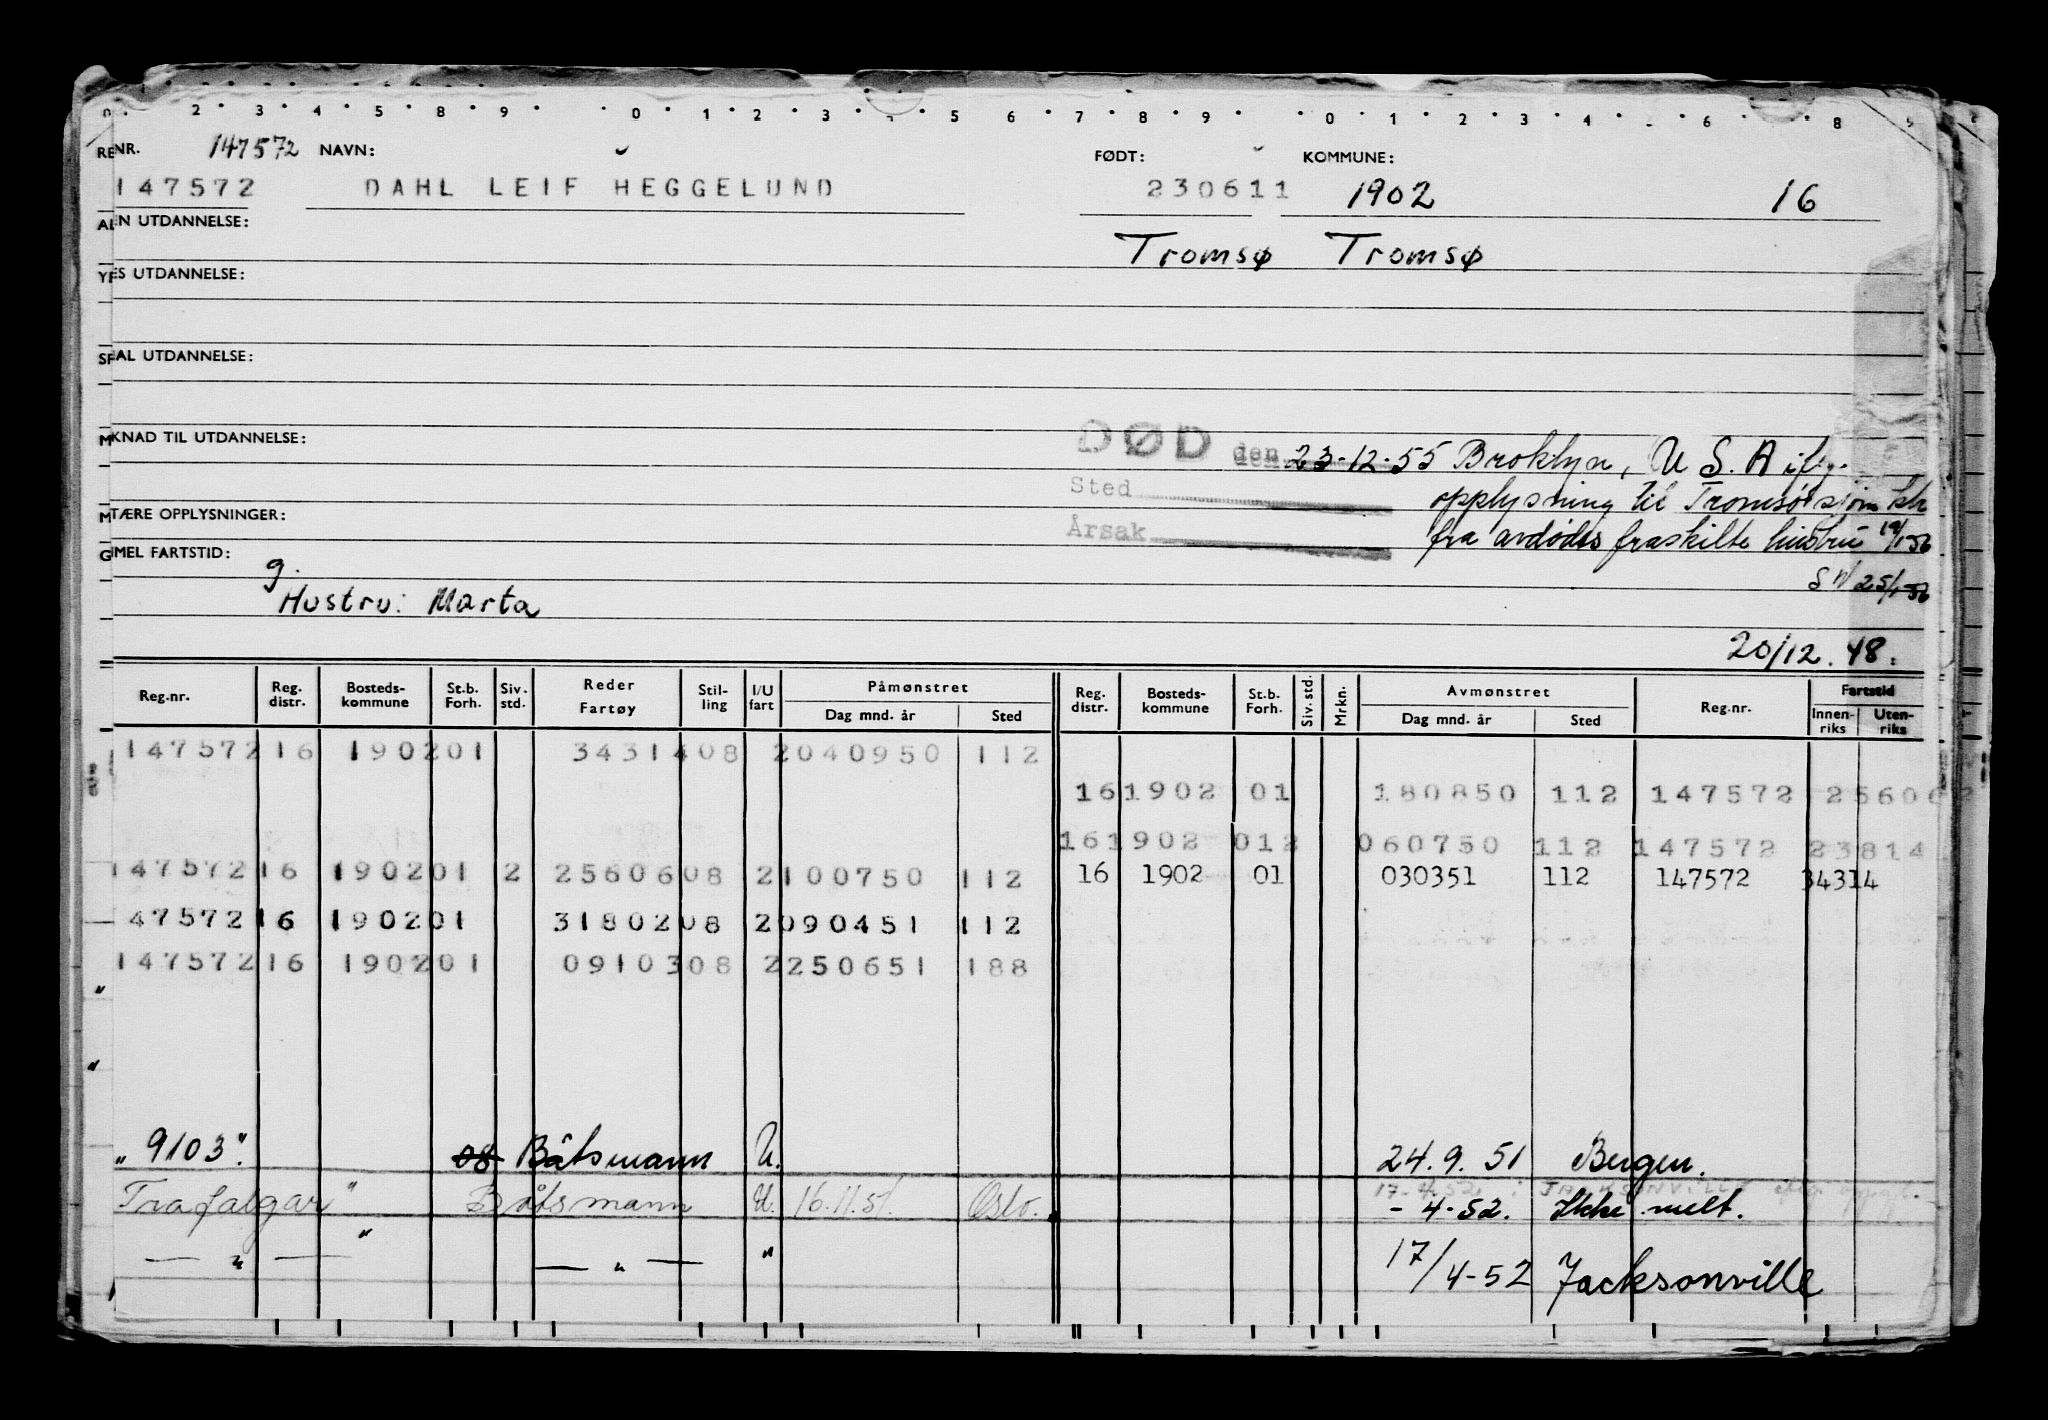 0 . 2 . 3 . 4 . 5 . 8 . 9 . . 0 . 1 . 2 . 3 . 4 . 5 . 6 . 7 . 8 . 9 . . 0 . 1 . 2 . 3 . 4 . . 6 . . 8 . 9
RENR. 147572 NAVN: FØDT: KOMMUNE:
147572 DAHL LEIF HEGGELUND 230611 1902 16
ALEN UTDANNELSE: Tromsø Tromsø
YRES UTDANNELSE:
SPAL UTDANNELSE:
MKNAD TIL UTDANNELSE: DØD den 23-12-55 Broklyn, U S. A ifg.
Sted opplysning til Tromsø sjøm.ktr
MTÆRE OPPLYSNINGER: Årsak fra avdødes fraskilte hustru 19/1 56
GMEL FARTSTID: g. SW 25/1-56
Hustru: Marta
20/12. 48.
Reg.nr. Reg. distr. Bosteds-kommune St.b. Forh. Siv. std. Reder Fartøy Stil-ling I/U fart Påmønstret Dag mnd. år Sted Reg. distr. Bosteds-kommune St.b. Forh. Siv. std. Mrkn. Avmønstret Dag mnd. år Sted Reg.nr. Fartstid Innen-riks Uten-riks
147572 16 1902 01 34314 08 2 040950 112
16 1902 01 180850 112 147572 25606
16 1902 01 2 060750 112 147572 23814
147572 16 1902 01 2 25606 08 2 100750 112 16 1902 01 030351 112 147572 34314
47572 16 1902 01 31802 08 2 090451 112
147572 16 1902 01 09103 08 2 250651 188
"
"
„9103". 08 Båtsmann U. 24.9.51 Bergen.
17-4.52. i JACKSONVILLE
Trafalgar" Båtsmann U. 16.11.51. Oslo. - 4-52. Ikke melt.
— " — — " — " 17/4-52 Jacksonville